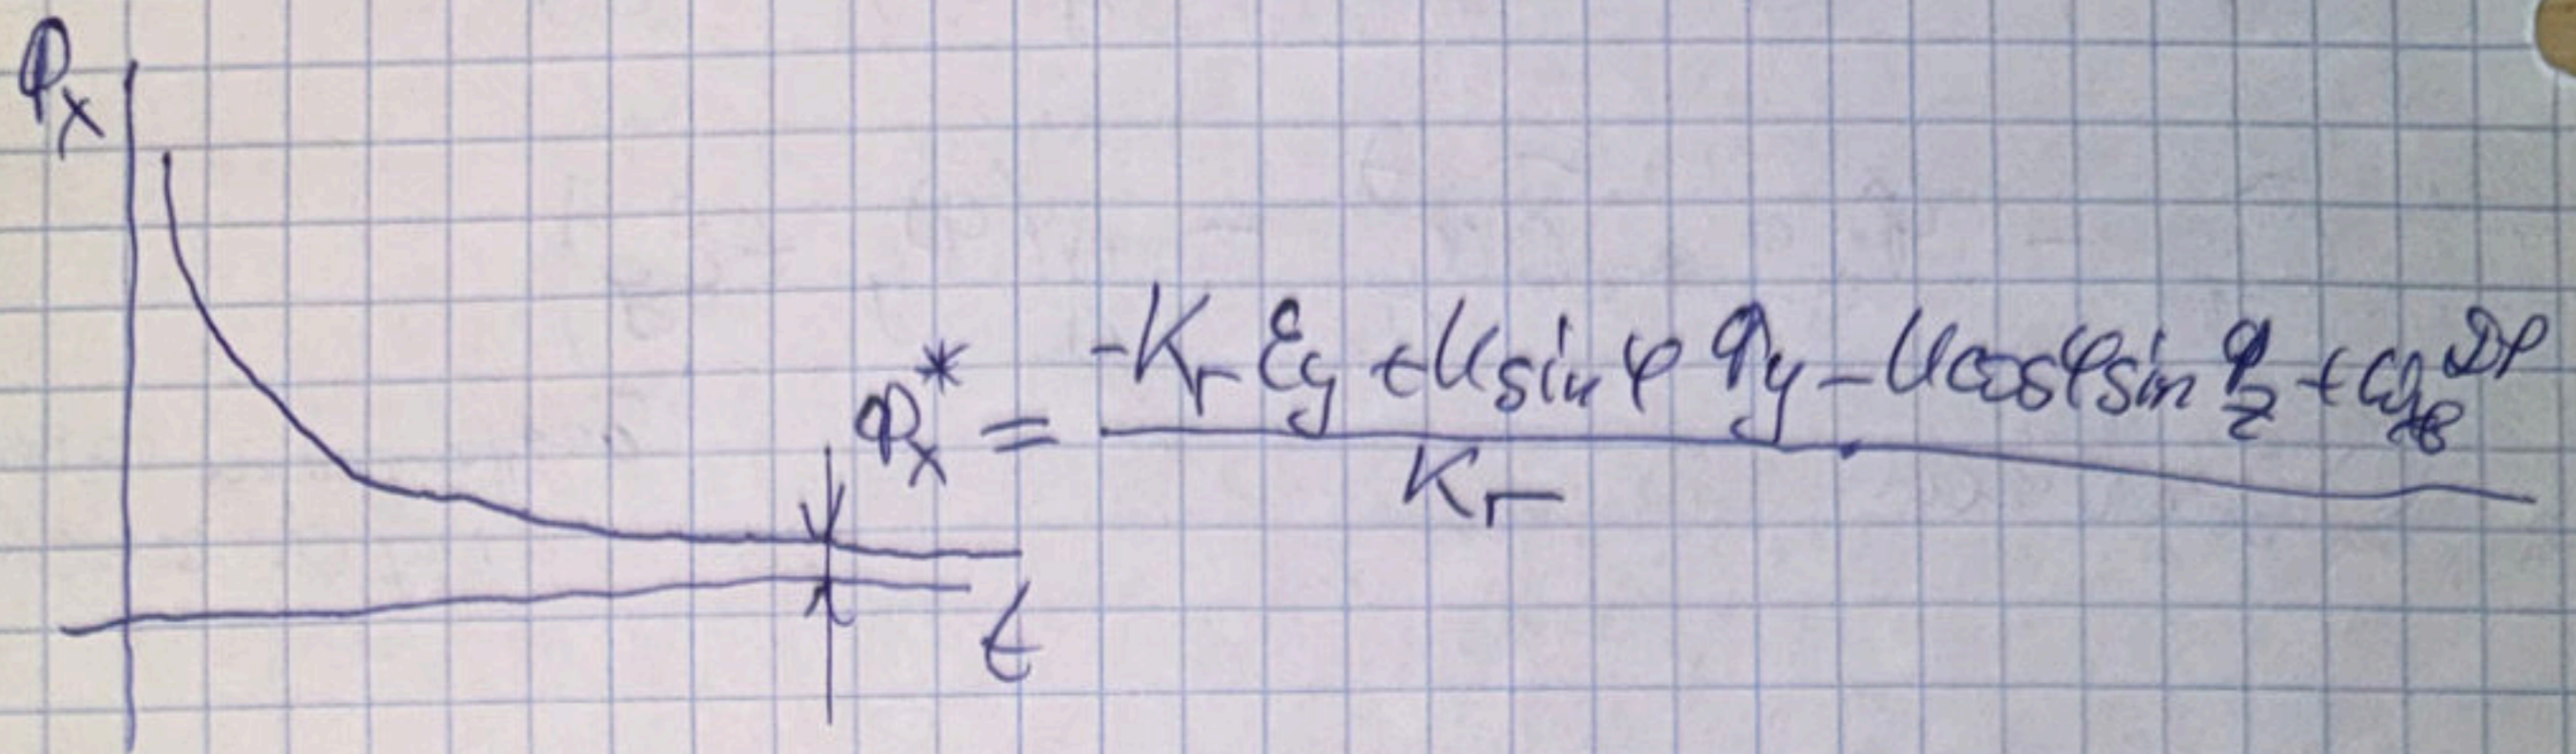 Φₓ
Φₓ* = (-Kᵣ εy + U sin φ Φy - U cos φ sin Φz + ω ДР) / Kᵣ
t